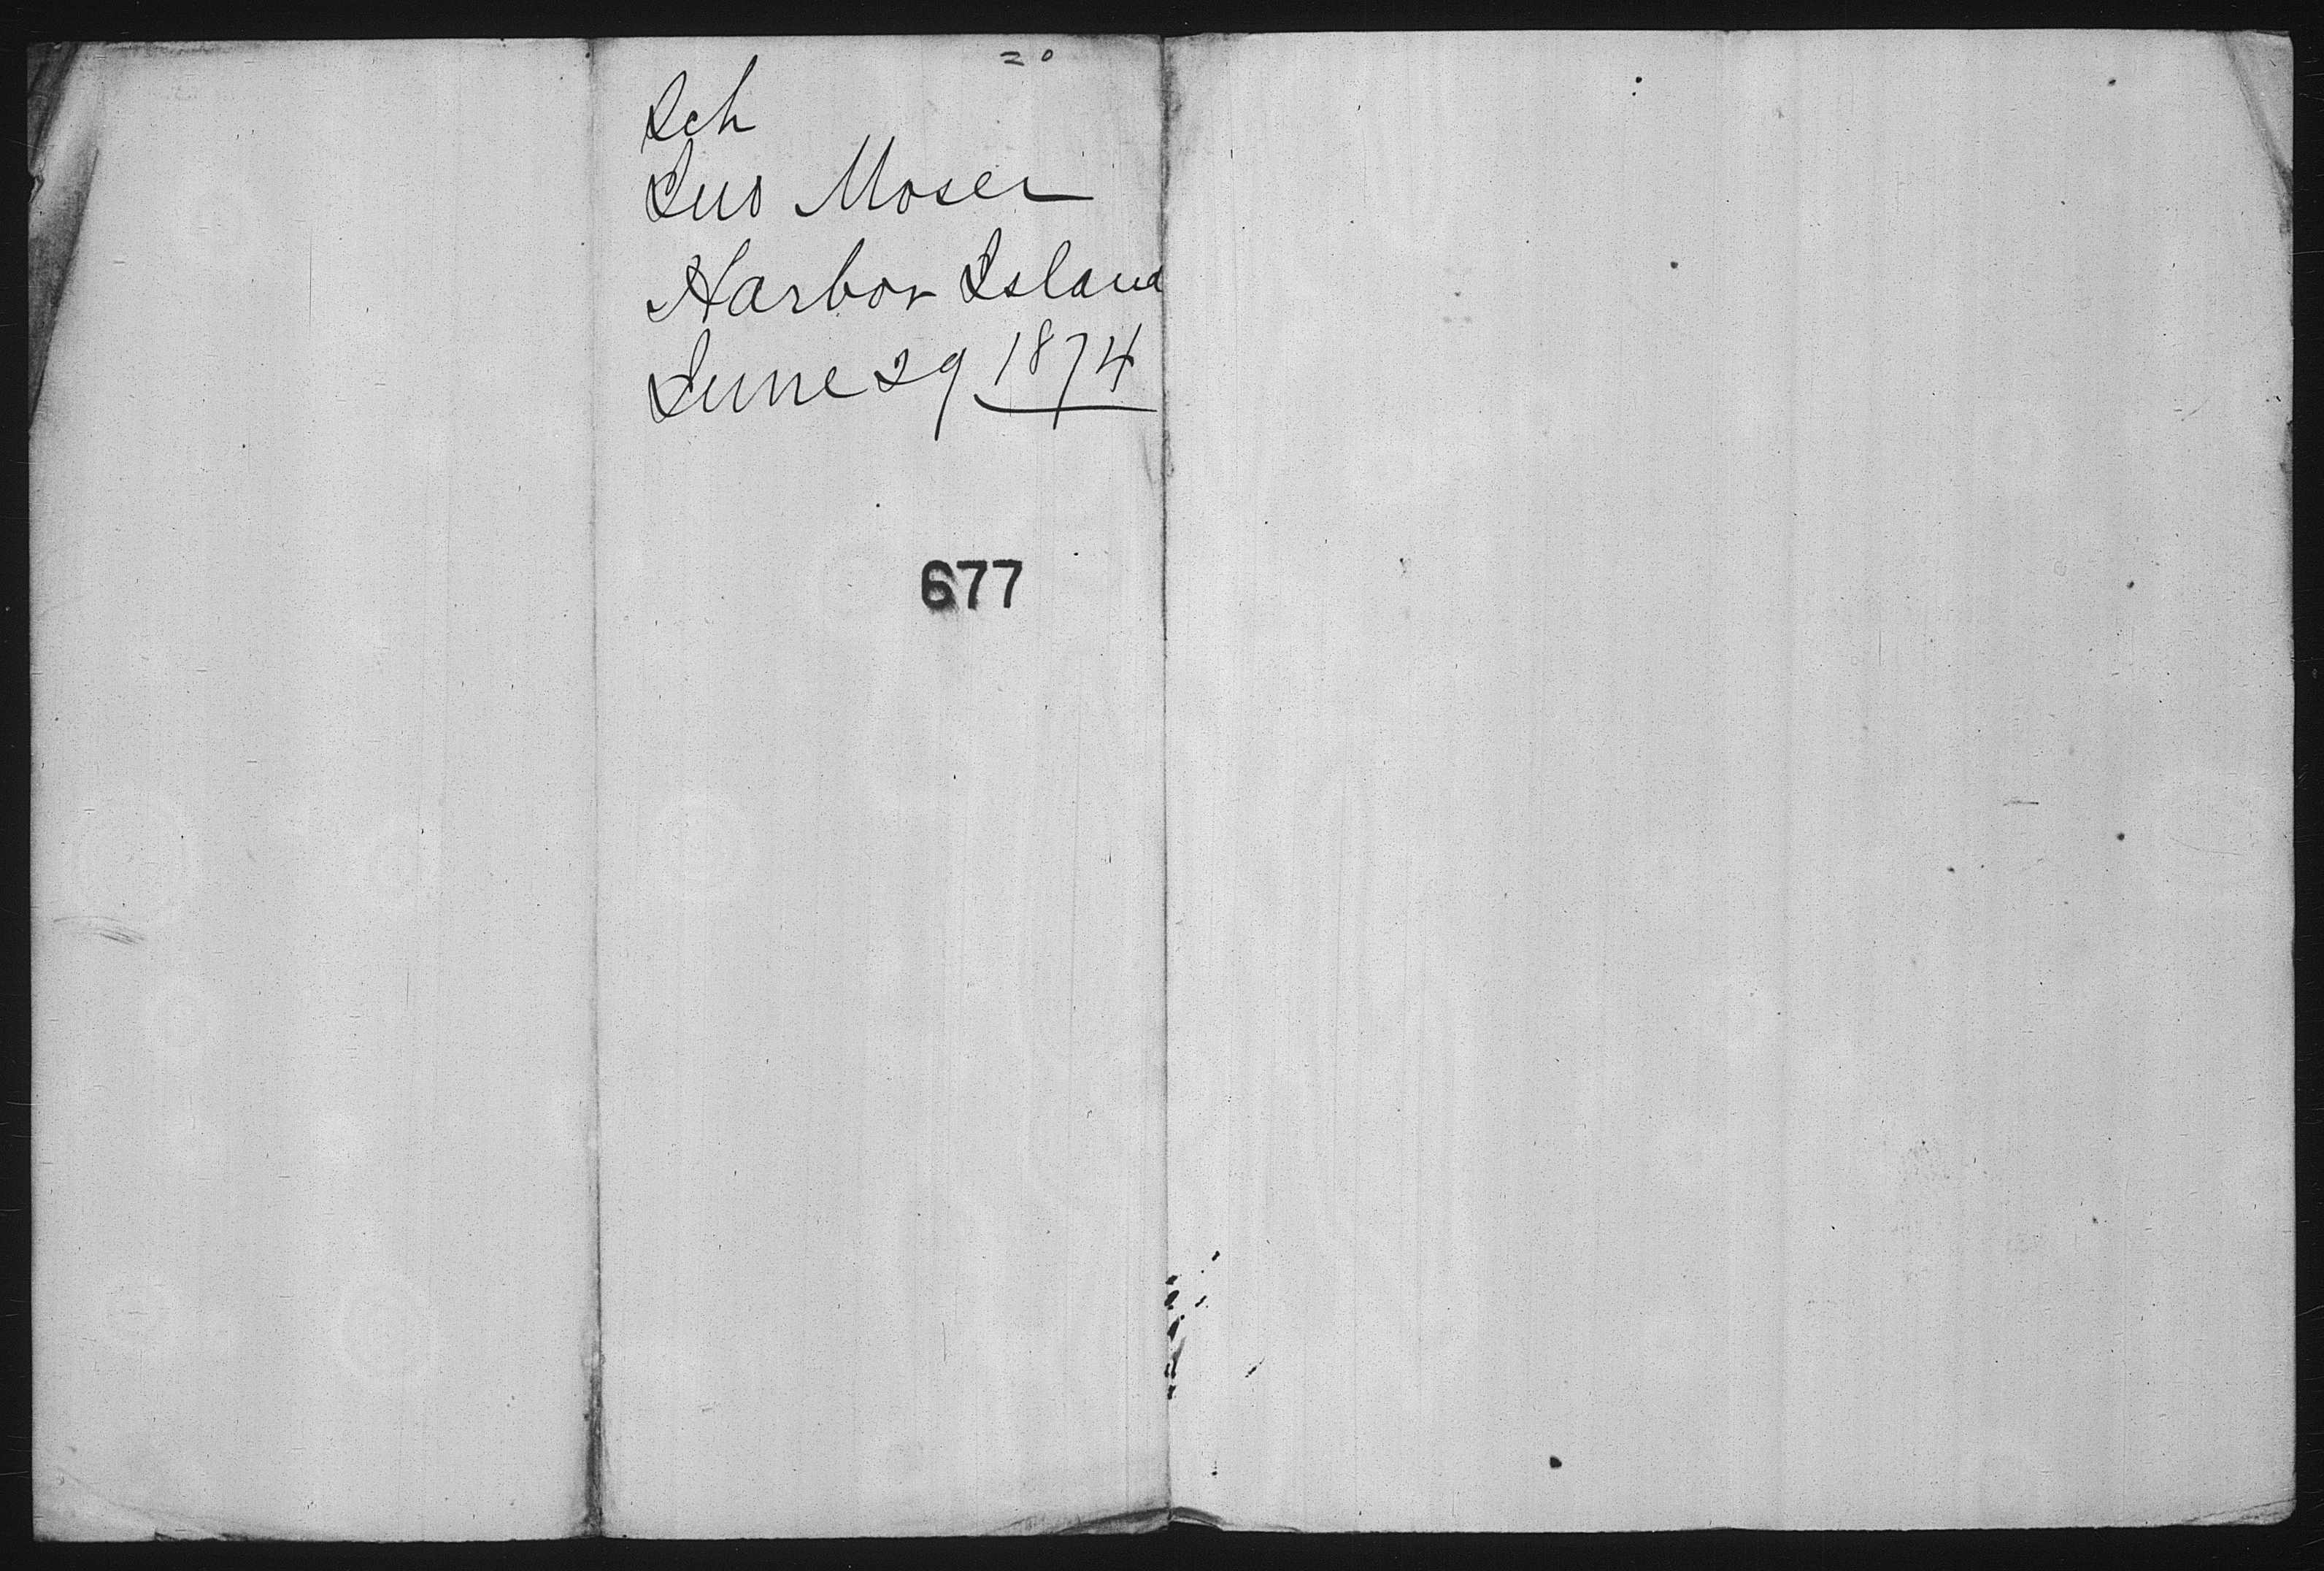 Sch
Jno Moser
Harbor Island
June 29 1874
677